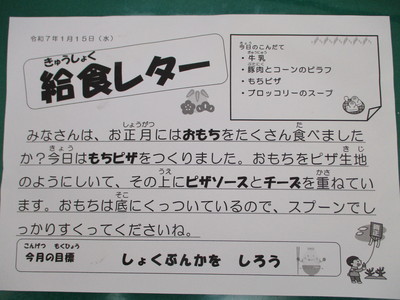 令和７年１月１５日（水）
きゅうしょく
給食レター
きょう
今日のこんだて
ぎゅうにゅう
・牛乳
ぶたにく
・豚肉とコーンのピラフ
・もちピザ
・ブロッコリーのスープ
しょうがつ た
みなさんは、お正月にはおもちをたくさん食べました
きょう きじ
か？今日はもちピザをつくりました。おもちをピザ生地
うえ かさ
のようにしいて、その上にピザソースとチーズを重ねてい
そこ
ます。おもちは底にくっついているので、スプーンでし
っかりすくってくださいね。
こんげつ もくひょう
今月の目標
しょくぶんかを しろう